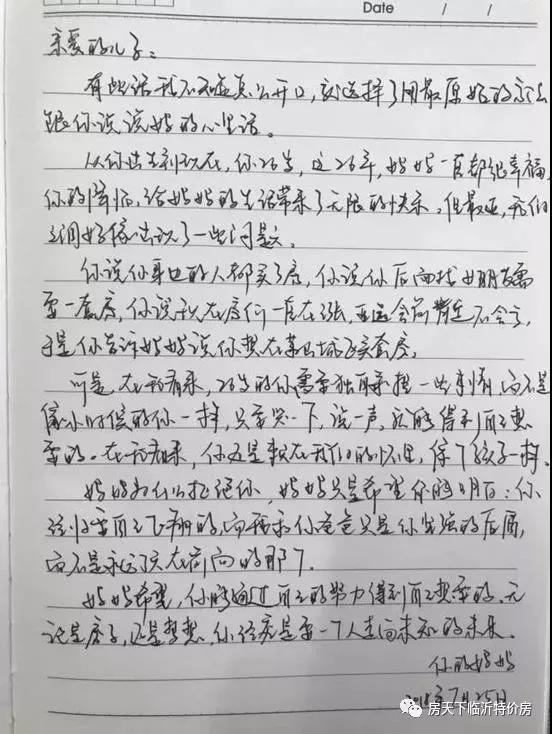 Date / /
亲爱的儿子:
有些话我不知道怎么开口,就选择了用最原始的方法
跟你说说妈妈的心里话。
从你出生到现在,你26岁,这26年,妈妈一直都很幸福,
你的降临,给妈妈的生活带来了无限的快乐。但最近,我们
之间好像出现了一些问题。
你说你身边的人都买了房,你说你后面找女朋友需
要一套房,你说现在房价一直在涨,
于是你告诉妈妈说你想在某某城区买套房。
可是,在我看来,26岁的你需要独自承担一些事情,而不是
像小时候的你一样,只要哭一下,说一声,就能得到自己想
要的。在我看来,你还是躲在我们的怀里,像个孩子一样。
妈妈为什么拒绝你,妈妈只是希望你能明白:你
终归要自己飞翔的,而我和你爸爸只是你坚强的后盾,
而不是永远顶在前面的那个。
妈妈希望,你能通过自己的努力得到自己想要的,无
论是房子,还是梦想,你终究是要一个人走向未知的未来。
你的妈妈
2018年7月25日
房天下临沂特价房